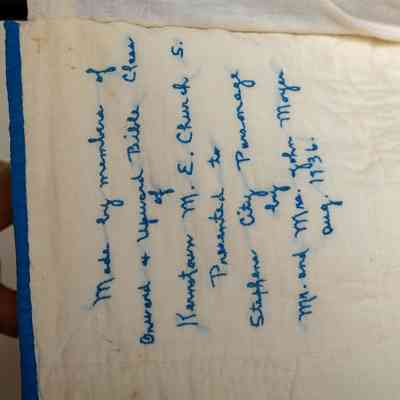 Made by members of
Onward & Upward Bible Class
of
Kernstown M. E. Church S.
Presented to
Stephens City Parsonage
by
Mr. and Mrs. John Moyer
Aug. 1936.